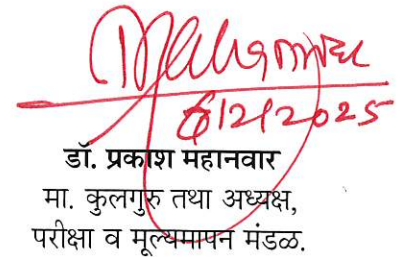 6/2/2025
डॉ. प्रकाश महानवार
मा. कुलगुरु तथा अध्यक्ष,
परीक्षा व मूल्यमापन मंडळ.